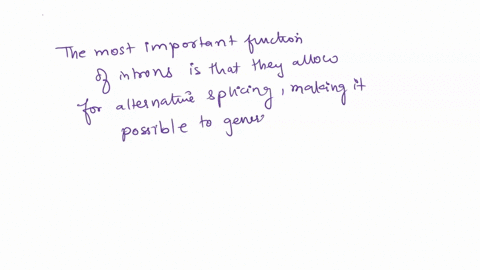 The most important function
of introns is that they allow
for alternative splicing, making it
possible to gener